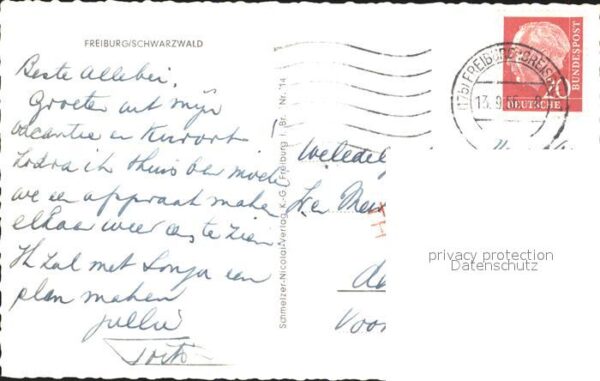 FREIBURG/SCHWARZWALD
Beste Allebei,
Groeten uit mijn
vacantie en Kuroord
Zodra ik thuis ben moeten
we een appraat maken
elkaar weer eens te zien
Ik zal met Sonja een
plan maken
jullie
Schmelzer-Nicolai-Verlag K.-G., Freiburg i. Br. Nr. 14
(17b) FREIBURG (BREISG)
13.9.
20
DEUTSCHE
BUNDESPOST
Weledel
Voor
privacy protection
Datenschutz